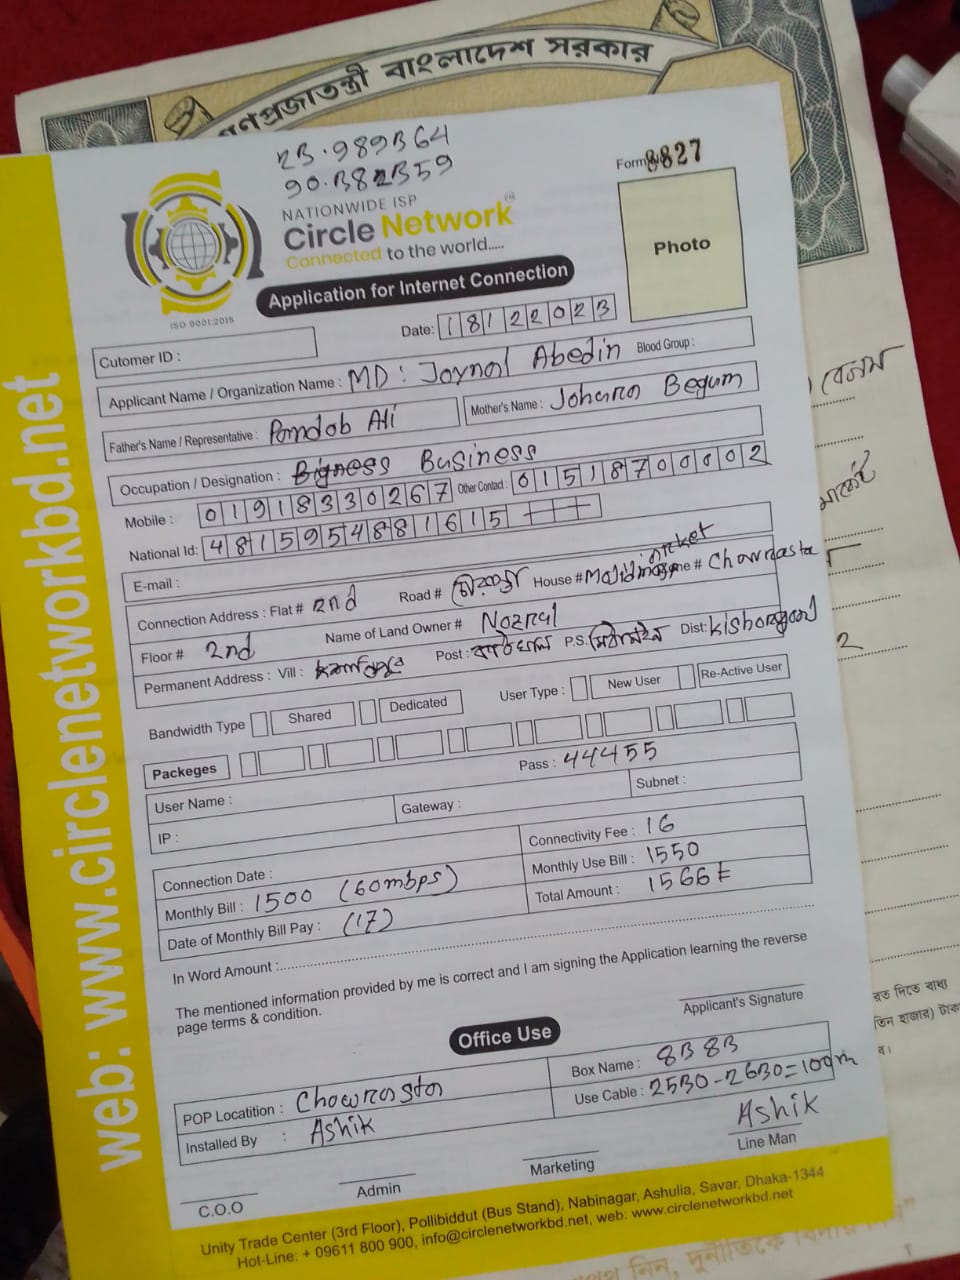 গণপ্রজাতন্ত্রী বাংলাদেশ সরকার
2B.989B64
90.B82B59
Form 8827
NATIONWIDE ISP
Circle Network
Connected to the world.....
ISO 9001:2015
Photo
Application for Internet Connection
Date: 18122023
Cutomer ID :
Applicant Name / Organization Name : MD: Joynal Abedin Blood Group :
Father's Name / Representative : Pandob Ali Mother's Name : Johura Begum
Occupation / Designation : Business
Mobile : 01918330267 Other Contact : 01518700002
National Id: 4815954881615
E-mail :
Connection Address : Flat # 2nd Road # House # Chowrasta
Floor # 2nd Name of Land Owner # Nozrul
Permanent Address : Vill : Post : P.S. Dist: kishoregonj
Bandwidth Type Shared Dedicated User Type : New User Re-Active User
Packeges
User Name : Pass : 44455
IP : Gateway : Subnet :
Connection Date : Connectivity Fee : 16
Monthly Bill : 1500 (60mbps) Monthly Use Bill : 1550
Date of Monthly Bill Pay : (17) Total Amount : 1566
In Word Amount :
The mentioned information provided by me is correct and I am signing the Application learning the reverse
page terms & condition.
Applicant's Signature
Office Use
POP Locatition : Chowrasta Box Name : 8B 8B
Installed By : Ashik Use Cable : 2530-2630=100m
Ashik
C.O.O Admin Marketing Line Man
Unity Trade Center (3rd Floor), Pollibiddut (Bus Stand), Nabinagar, Ashulia, Savar, Dhaka-1344
Hot-Line: + 09611 800 900, info@circlenetworkbd.net, web: www.circlenetworkbd.net
web: www.circlenetworkbd.net
বেগম
2
রত দিতে বাধ্য
তিন হাজার) টাক
ব।